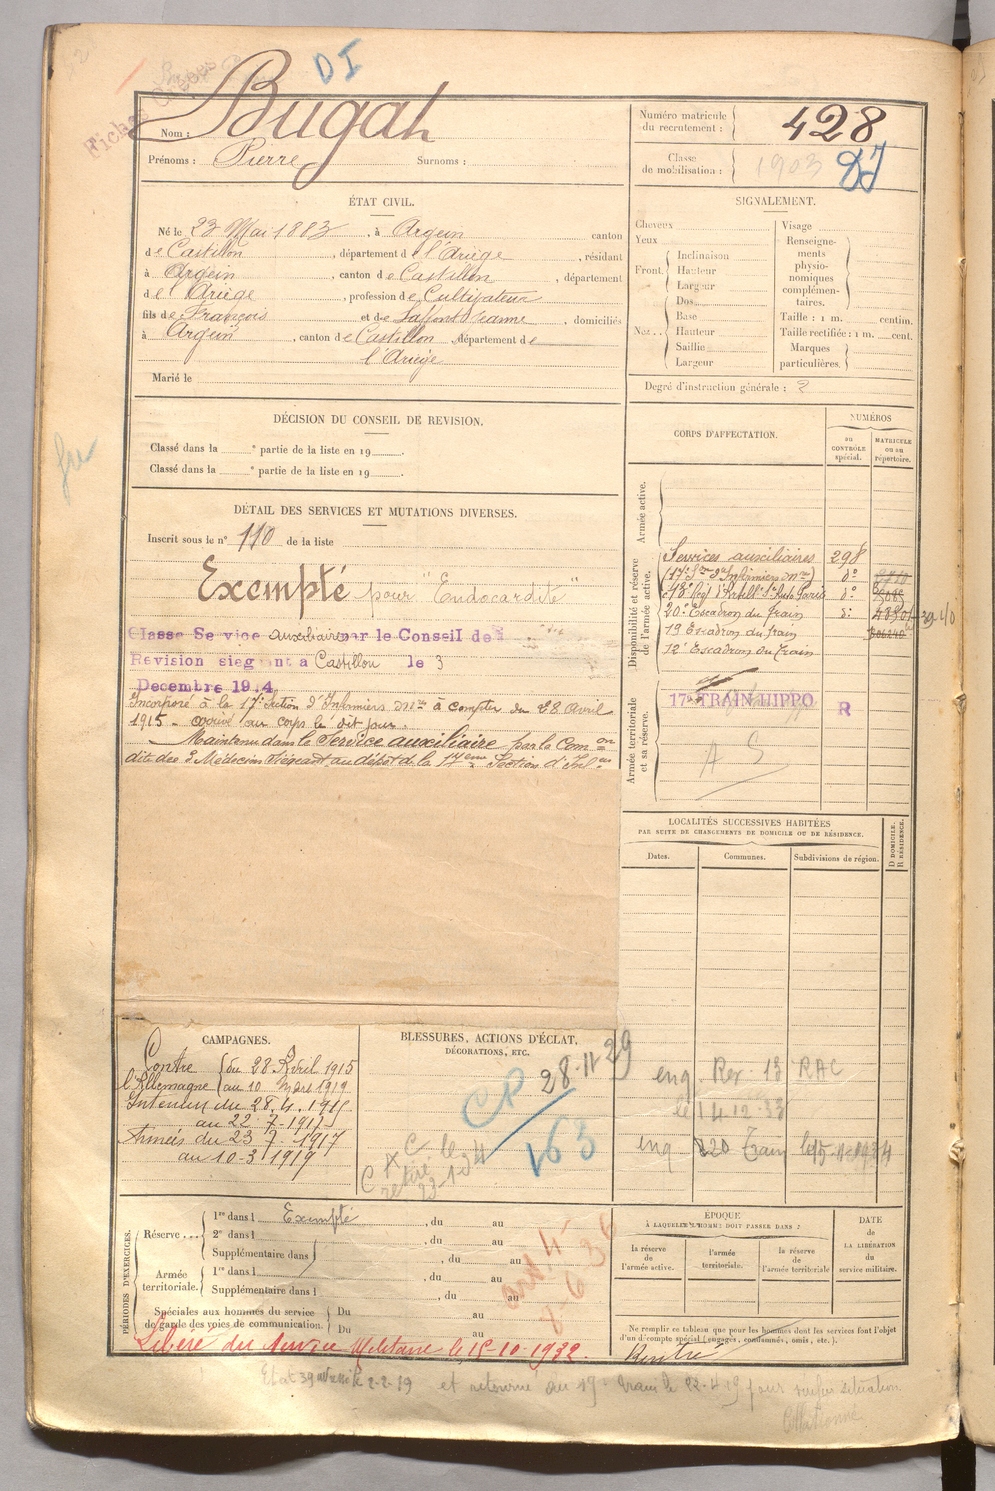 DI
Fiches
Nom : Bugat
Prénoms : Pierre Surnoms :
Numéro matricule du recrutement : 428
Classe de mobilisation : 1903 DI
ÉTAT CIVIL.
Né le 23 Mai 1883, à Argein canton
de Castillon, département de l'Ariège, résidant
à Argein, canton de Castillon, département
de l'Ariège, profession de Cultivateur
fils de François et de Laffont Jeanne, domiciliés
à Argein, canton de Castillon, département de
l'Ariège
Marié le
SIGNALEMENT.
Cheveux
Yeux
Front.
Inclinaison
Hauteur
Largeur
Nez...
Dos
Base
Hauteur
Saillie
Largeur
Visage
Renseigne-
ments
physio-
nomiques
complémen-
taires.
Taille : 1 m. centim.
Taille rectifiée : 1 m. cent.
Marques
particulières.
Degré d'instruction générale : 2
DÉCISION DU CONSEIL DE REVISION.
Classé dans la e partie de la liste en 19 .
Classé dans la e partie de la liste en 19 .
DÉTAIL DES SERVICES ET MUTATIONS DIVERSES.
Inscrit sous le n° 110 de la liste
Exempté pour "Endocardite"
Classe Service auxiliaire par le Conseil de
Revision siegeant a Castillon le 3
Decembre 1914
Incorporé à la 17e Section d'Infirmiers mres à compter du 28 Avril
1915 - arrivé au corps le dit jour.
Maintenu dans le Service auxiliaire par la Comon
dite des 3 Médecins siégeant au dépôt de la 17ème Section d'Infres
CORPS D'AFFECTATION.
NUMÉROS
au
CONTRÔLE
spécial.
MATRICULE
ou au
répertoire.
Armée active.
Disponibilité et réserve
de l'armée active.
Services auxiliaires 298
(17e Son d'Infirmiers mres) do
20e Escadron du train
19 Escadron du train
12e Escadron du Train
Armée territoriale
et sa réserve.
17e TRAIN HIPPO R
A S
LOCALITÉS SUCCESSIVES HABITÉES
PAR SUITE DE CHANGEMENTS DE DOMICILE OU DE RÉSIDENCE.
Dates. Communes. Subdivisions de région.
D DOMICILE.
R RÉSIDENCE.
CAMPAGNES.
Contre
l'Allemagne
du 28 Avril 1915
au 10 Mars 1919
Intérieur du 28.4.1915
au 22-7-1917
Armées du 23 7-1917
au 10-3-1919
BLESSURES, ACTIONS D'ÉCLAT,
DÉCORATIONS, ETC.
28-11-29
CP
163
le 14 12-33
PÉRIODES D'EXERCICES.
Réserve...
1re dans l Exempté, du au
2e dans l , du au
Supplémentaire dans l , du au
Armée
territoriale.
1re dans l , du au
Supplémentaire dans l , du au
Spéciales aux hommes du service
de garde des voies de communication.
Du au
Du au
Libéré du service Militaire le 15-10-1932.
ÉPOQUE
À LAQUELLE L'HOMME DOIT PASSER DANS :
la réserve
de
l'armée active.
l'armée
territoriale.
la réserve
de
l'armée territoriale
DATE
de
LA LIBÉRATION
du
service militaire.
Ne remplir ce tableau que pour les hommes dont les services font l'objet
d'un décompte spécial (engagés, condamnés, omis, etc.).
et retourné au 19e train le 22-4-19 pour situation
Collationné